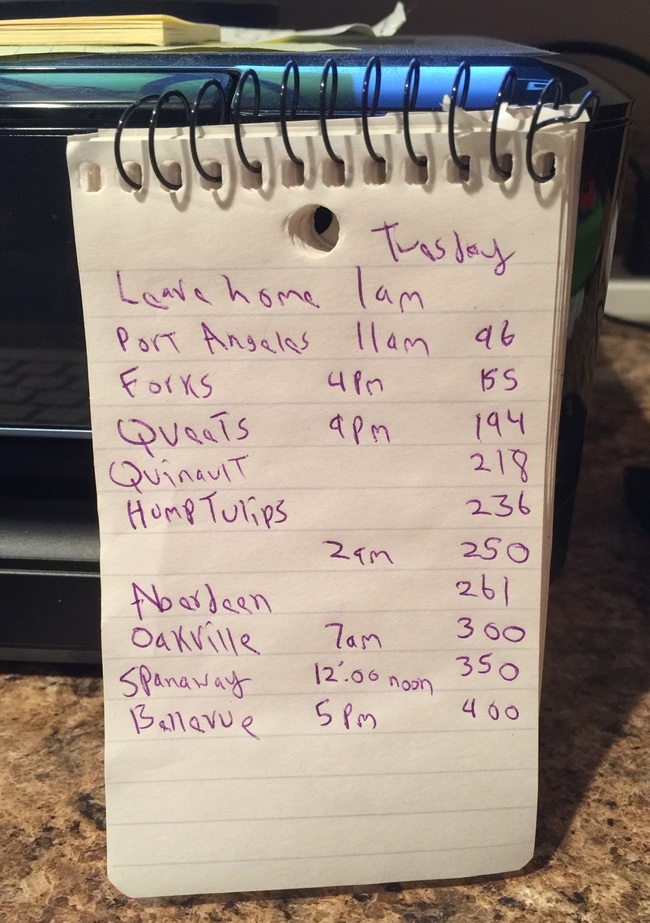 Tuesday
Leave home 1am
Port Angeles 11am 96
Forks 4pm 155
Queets 9pm 194
Quinault 218
HumpTulips 236
2am 250
Aberdeen 261
Oakville 7am 300
Spanaway 12:00 noon 350
Bellevue 5pm 400